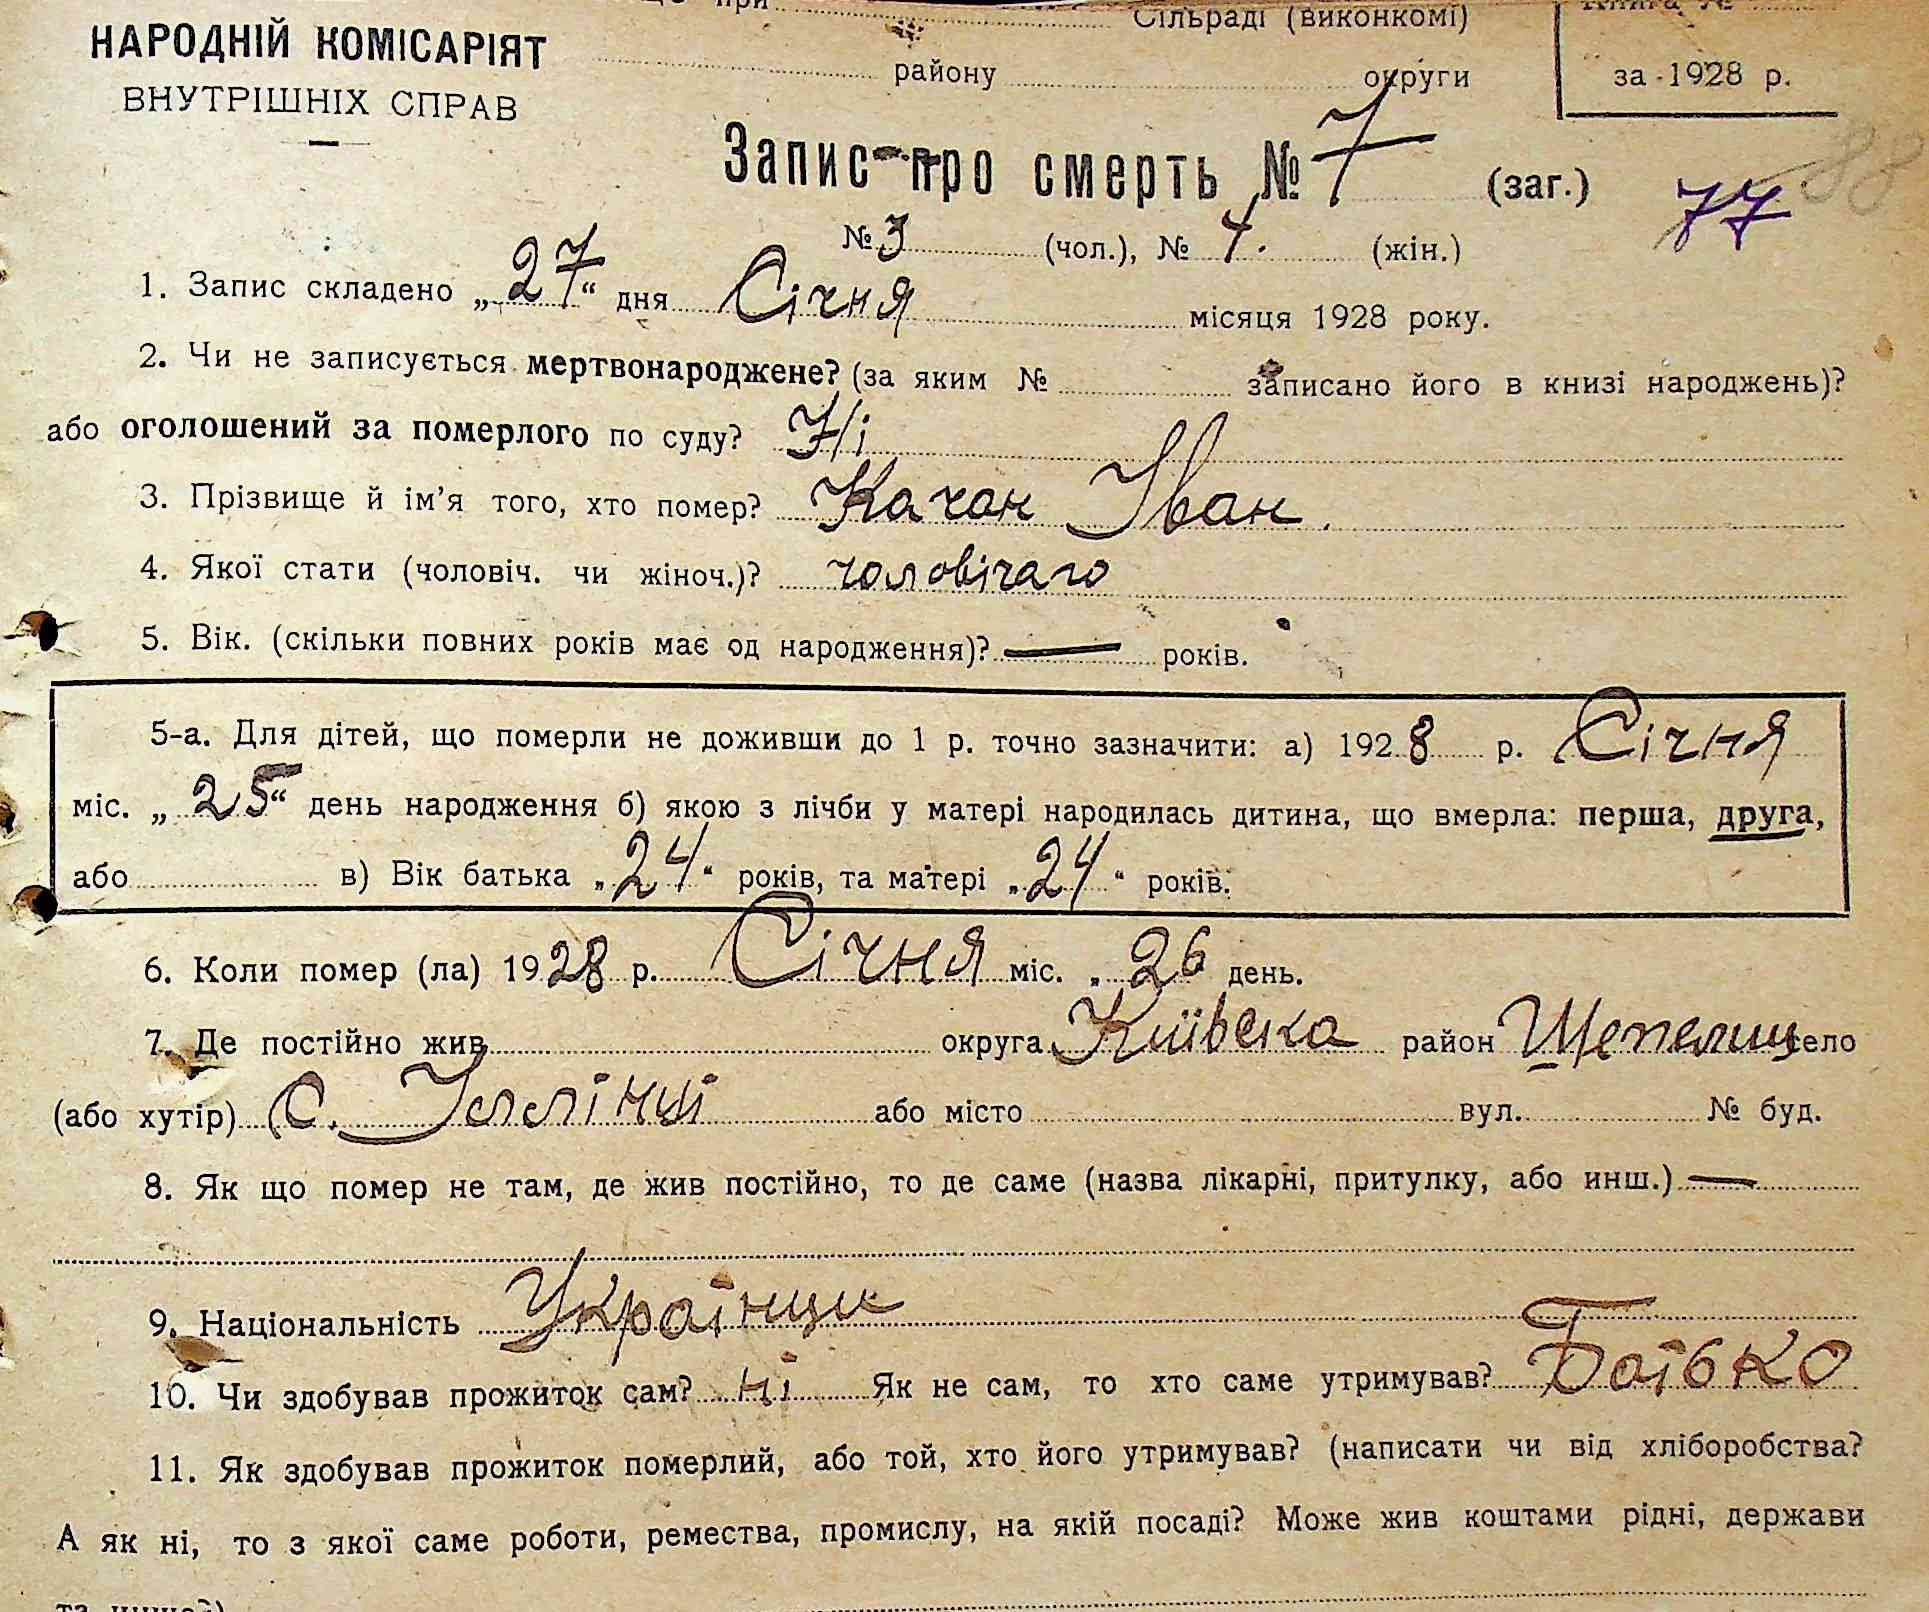 при Сільраді (виконкомі)
НАРОДНІЙ КОМІСАРІЯТ
ВНУТРІШНІХ СПРАВ
району округи
за 1928 р.
Запис про смерть № 7 (заг.)
77 88
№ 3 (чол.), № 4. (жін.)
1. Запис складено „27“ дня Січня місяця 1928 року.
2. Чи не записується мертвонароджене? (за яким № записано його в книзі народжень)?
або оголошений за померлого по суду? Ні
3. Прізвище й ім’я того, хто помер? Качан Іван.
4. Якої стати (чоловіч. чи жіноч.)? чоловічаго
5. Вік. (скільки повних років має од народження)? — років.
5-а. Для дітей, що померли не доживши до 1 р. точно зазначити: а) 1928 р. Січня
міс. „25“ день народження б) якою з лічби у матері народилась дитина, що вмерла: перша, друга,
або в) Вік батька „24“ років, та матері „24“ років.
6. Коли помер (ла) 1928 р. Січня міс. „26 день.
7. Де постійно жив округа Київска район Щепелиц село
(або хутір) С. Іллінці або місто вул. № буд.
8. Як що помер не там, де жив постійно, то де саме (назва лікарні, притулку, або инш.) —
9. Національність Українци
10. Чи здобував прожиток сам? ні Як не сам, то хто саме утримував? Батько
11. Як здобував прожиток померлий, або той, хто його утримував? (написати чи від хліборобства?
А як ні, то з якої саме роботи, ремества, промислу, на якій посаді? Може жив коштами рідні, держави